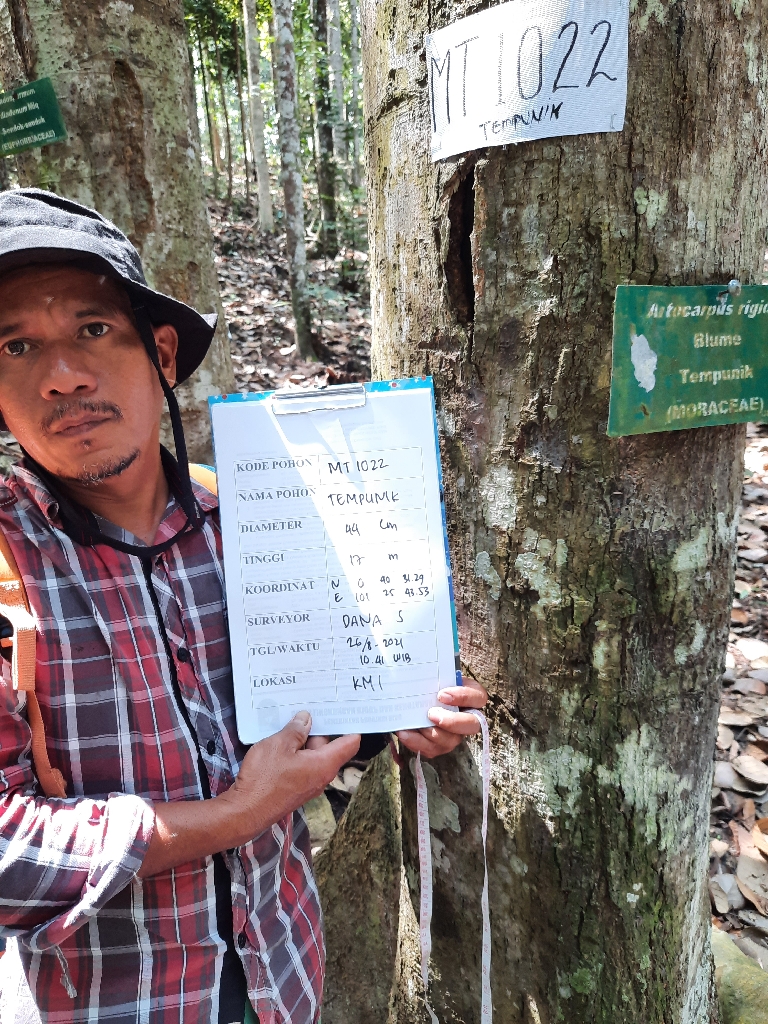 MT 1022
TEMPUNIK
Sendok-sendok
(EUPHORBIACEAE)
Artocarpus rigid
Blume
Tempunik
(MORACEAE)
KODE POHON MT 1022
NAMA POHON TEMPUNIK
DIAMETER 44 Cm
TINGGI 17 m
KOORDINAT N 0 40 31.29
E 101 25 43.53
SURVEYOR DANA S
TGL/WAKTU 26/8-2021
10.41 WIB
LOKASI KMI